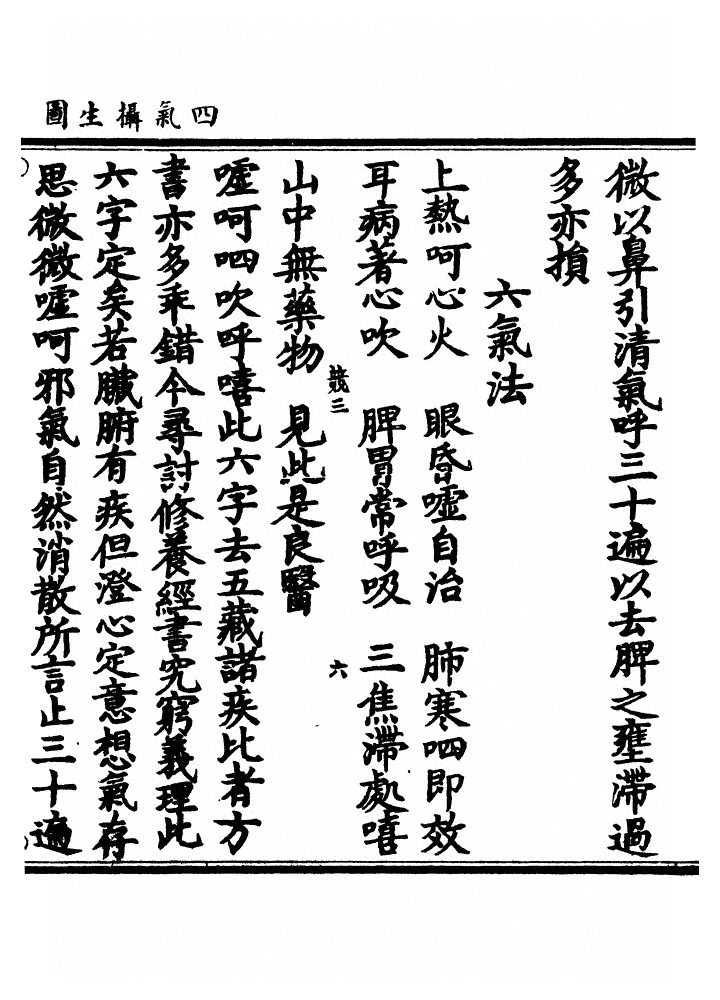 四氣攝生圖
微以鼻引清氣呼三十遍以去脾之壅滯過
多亦損
六氣法
上熱呵心火　眼昏噓自治　肺寒呬即效
耳病著心吹　脾胃常呼吸　三焦滯處嘻
競三　六
山中無藥物　見此是良醫
噓呵呬吹呼嘻此六字去五藏諸疾比者方
書亦多乖錯今尋討修養經書究窮義理此
六字定矣若臟腑有疾但澄心定意想氣存
思微微噓呵邪氣自然消散所言止三十遍